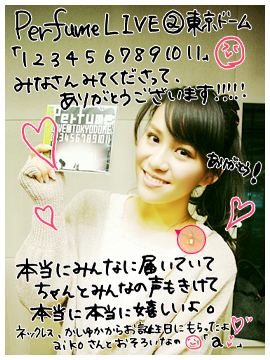 Perfume LIVE @東京ドーム
「1 2 3 4 5 6 7 8 9 10 11」
みなさんみてくださって、
ありがとうございます!!!!!
Perfume
LIVE@TOKYODOME
1234567891011
ありがと!
本当にみんなに届いていて
ちゃんとみんなの声もきけて
本当に本当に嬉しいよ。
ネックレス、かしゆかからお誕生日にもらったよ♡
aikoさんとおそろいなの「a」